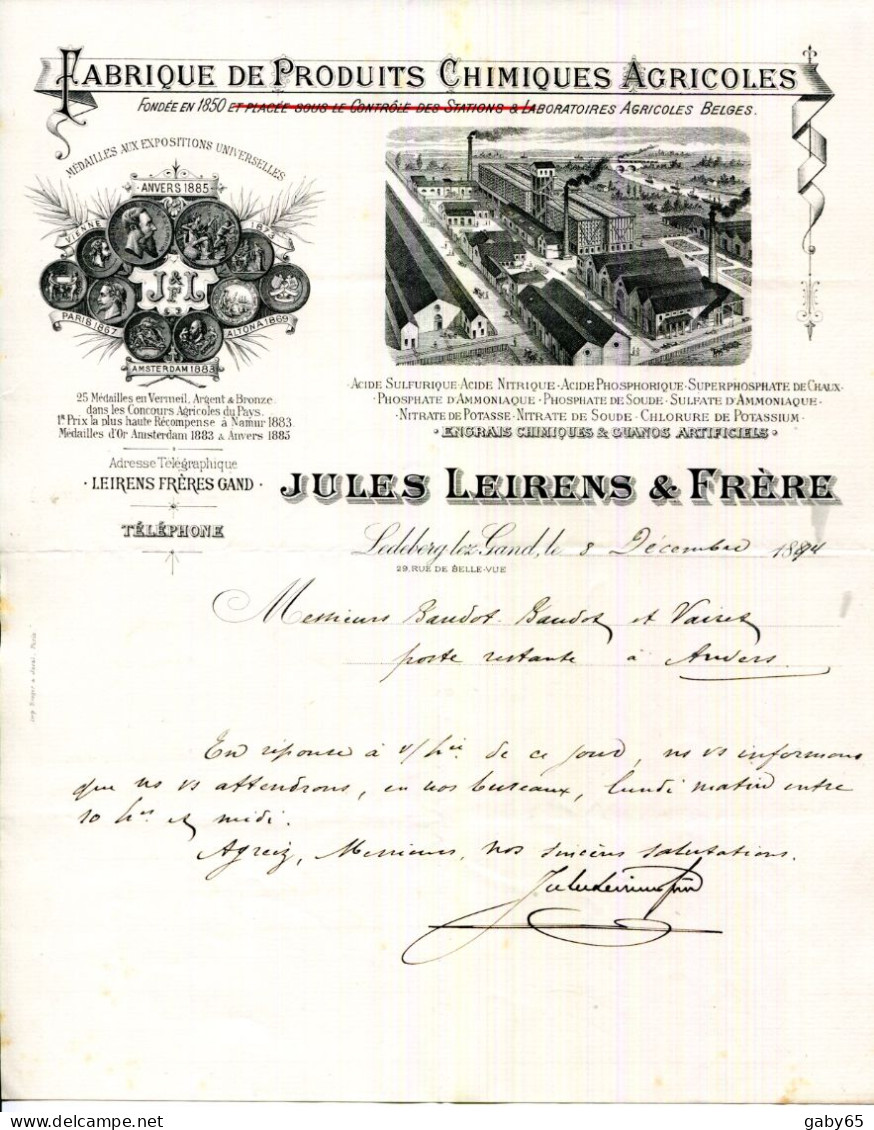 FABRIQUE DE PRODUITS CHIMIQUES AGRICOLES
FONDÉE EN 1850 ET PLACÉE SOUS LE CONTRÔLE DES STATIONS & LABORATOIRES AGRICOLES BELGES.
MÉDAILLES AUX EXPOSITIONS UNIVERSELLES
ANVERS 1885
VIENNE 1873
J&L
F
PARIS 1867
ALTONA 1869
AMSTERDAM 1883
25 Médailles en Vermeil, Argent & Bronze
dans les Concours Agricoles du Pays.
1er Prix la plus haute Récompense à Namur 1883.
Médailles d'Or Amsterdam 1883 & Anvers 1885
Adresse Télégraphique
· LEIRENS FRÈRES GAND ·
TÉLÉPHONE
· ACIDE SULFURIQUE · ACIDE NITRIQUE · ACIDE PHOSPHORIQUE · SUPERPHOSPHATE DE CHAUX ·
· PHOSPHATE D'AMMONIAQUE · PHOSPHATE DE SOUDE · SULFATE D'AMMONIAQUE ·
· NITRATE DE POTASSE · NITRATE DE SOUDE · CHLORURE DE POTASSIUM ·
· ENGRAIS CHIMIQUES & GUANOS ARTIFICIELS ·
JULES LEIRENS & FRÈRE
Ledeberg lez Gand, le 8 Décembre 1894
29, RUE DE BELLE-VUE
Messieurs Baudot Baudot et Vairet
poste restante à Anvers.
En réponse à v/ de ce jour, ns vs informons
que ns vs attendrons, en nos bureaux, lundi matin entre
10 hes et midi.
Agréez, Messieurs, nos sincères salutations.
Jules Leirens frère
gaby65